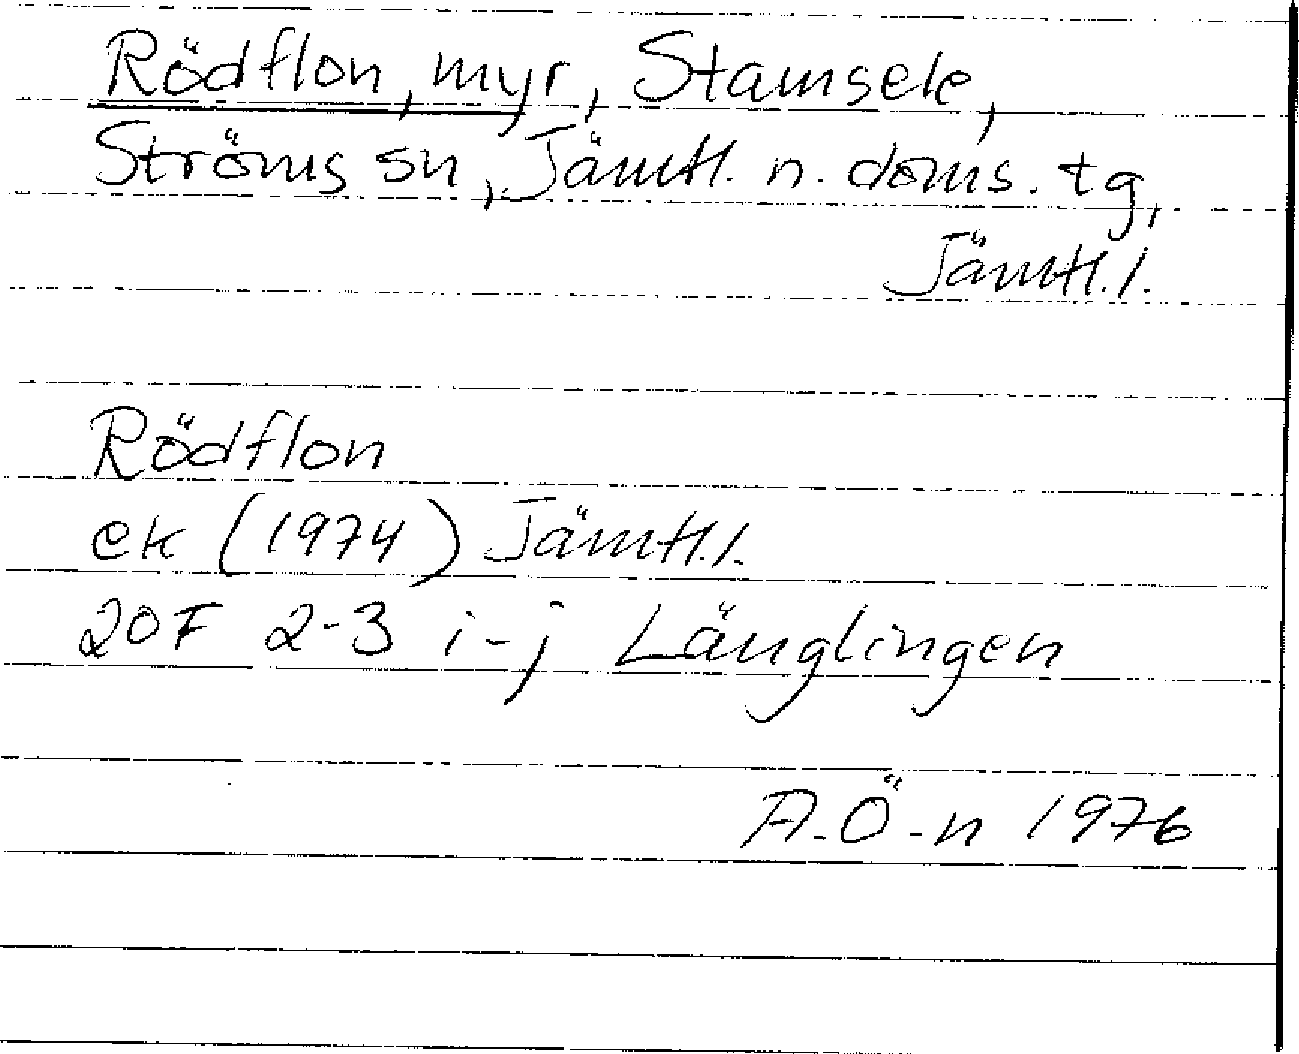 Rödflon, myr, Stamsele,
Ströms sn, Jämtl. n. doms. tg,
Jämtl. l.
Rödflon
ek (1974) Jämtl. l.
20F 2-3 i-j Länglingen
A. Ö-n 1976